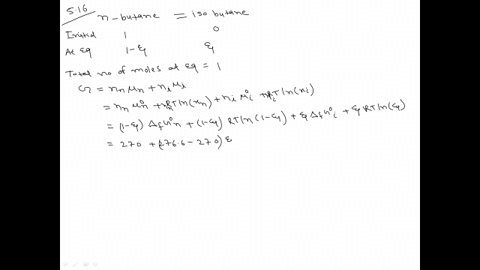 5.16
n-butane = iso butane
Initial 1 0
At Eq 1-ξ ξ
Total no of moles at Eq = 1
G = nₙμₙ + nᵢμᵢ
= nₙμ°ₙ + RT ln(xₙ) + nᵢμ°ᵢ + RT ln(xᵢ)
= (1-ξ) ΔfG°ₙ + (1-ξ) RT ln(1-ξ) + ξ ΔfG°ᵢ + ξ RT ln(ξ)
= 270 + (276.6 - 270) ξ